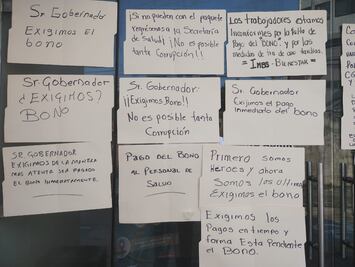 Sr. Gobernador
Exigimos el
bono
¡Si no pueden con el paquete
regresenos a la Secretaría
de Salud! ¡No es posible
tanta Corrupción!!
Los trabajadores estamos
por la falta de
Pago del "BONO" y por las
de
= Imss-Bienestar =
Sr. Gobernador
¿EXIGIMOS?
BONO
Sr. Gobernador:
¡¡Exigimos Bono!!
No es posible tanta
Corrupción
Sr. Gobernador
Exijimos el pago
inmediato del bono
SR. GOBERNADOR
EXIGIMOS DE LA MANERA
MAS ATENTA SEA PAGADO
EL BONO INMEDIATAMENTE.
PAGO DEL BONO
AL PERSONAL DE
SALUD
Primero somos
Heroes y ahora
Somos los últimos
Exigimos el bono
Exigimos los
Pagos en tiempo y
forma Esta Pendiente
el Bono.